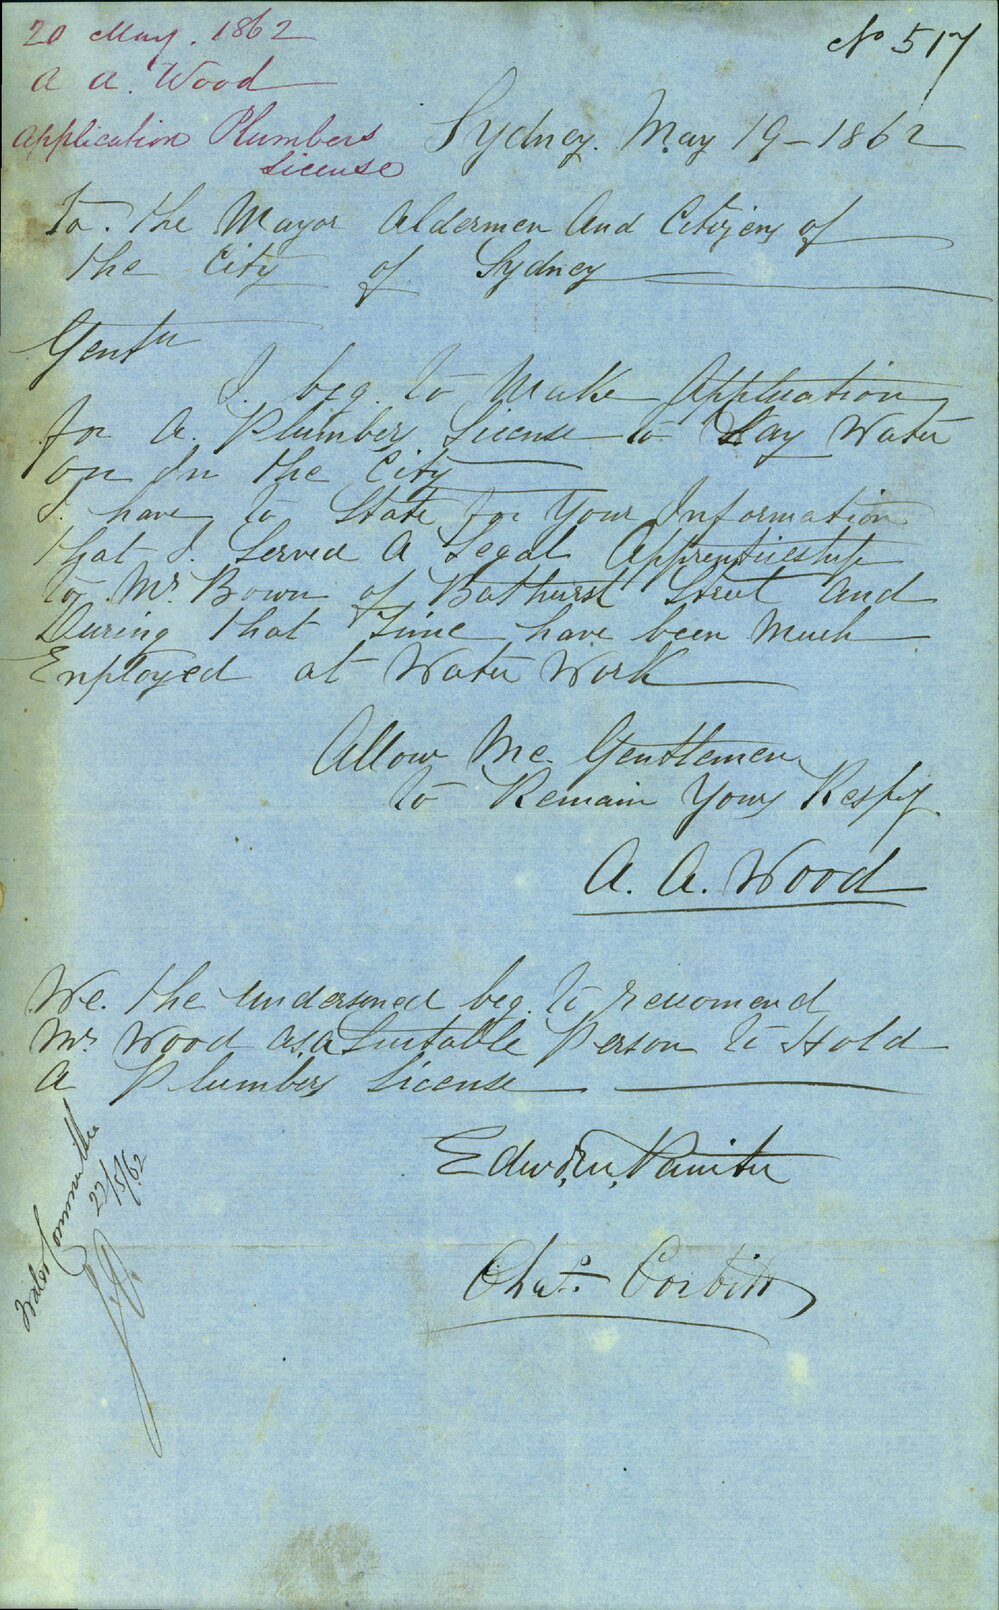 20 May. 1862
A A. Wood
Application Plumbers
License
No 517
Sydney. May 19 - 1862
To. the Mayor Aldermen And Citizens of
the City of Sydney
Gentn
I. beg. to Make Application
for A. Plumbers License to Lay Water
on In the City
I. have to State for Your Information
that I. Served A Legal Apprenticeship
to Mr. Bown of Bathurst Street And
During that Time have been Much
Employed at Water Work
Allow Me. Gentlemen
to Remain Yours Respy.
A. A. Wood
We. the undersined beg. to recomend
Mr. Wood as a Suitable Person to Hold
A Plumbers License
Chas. Corbitt
Water Committee
22/5/62